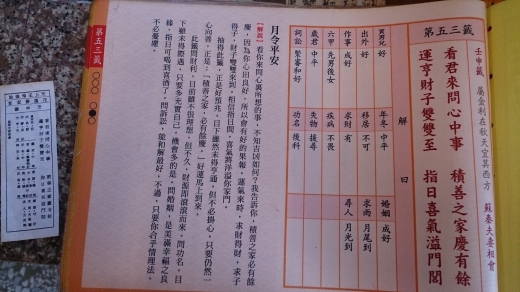 第五三籤
壬申籤 屬金利在秋天宜其西方 蘇秦夫妻相會
看君來問心中事 積善之家慶有餘
運亨財子雙雙至 指日喜氣溢門閭
解曰
年冬 中平
婚姻 成好
出外 好
移居 不可
求雨 月尾到
作事 成好
求財 有
尋人 月光到
六甲 先男後女
疾病 不畏
歲君 中平
失物 撥尋
訟 緊審和好
功名 後科
月令平安
【解說】看你來問心裏所想的事,不知吉凶如何?我告訴你,積善之家必有餘
慶,因為你心田良好,所以會有好的果報。運氣來時,求財得財,求子
得子,財子雙雙來到,相信指日間,喜氣將洋溢你家門。
抽得此籤,正是好預兆,目下雖然未得亨通,但不必掛心,只要仍然一
心向善,正是:「積善之家,必有餘慶。」好運馬上到來。
此籤問財利,目前雖不很理想,但不久,財源即滾滾而來。問功名,目
下雖未得際遇,只要多充實自己,機會多的是。問婚姻,是美滿幸福之良
緣,指日可喝到喜酒了。問訴訟,能和解最好,不過,只要你合乎情理法,
不必憂慮。
第五三籤